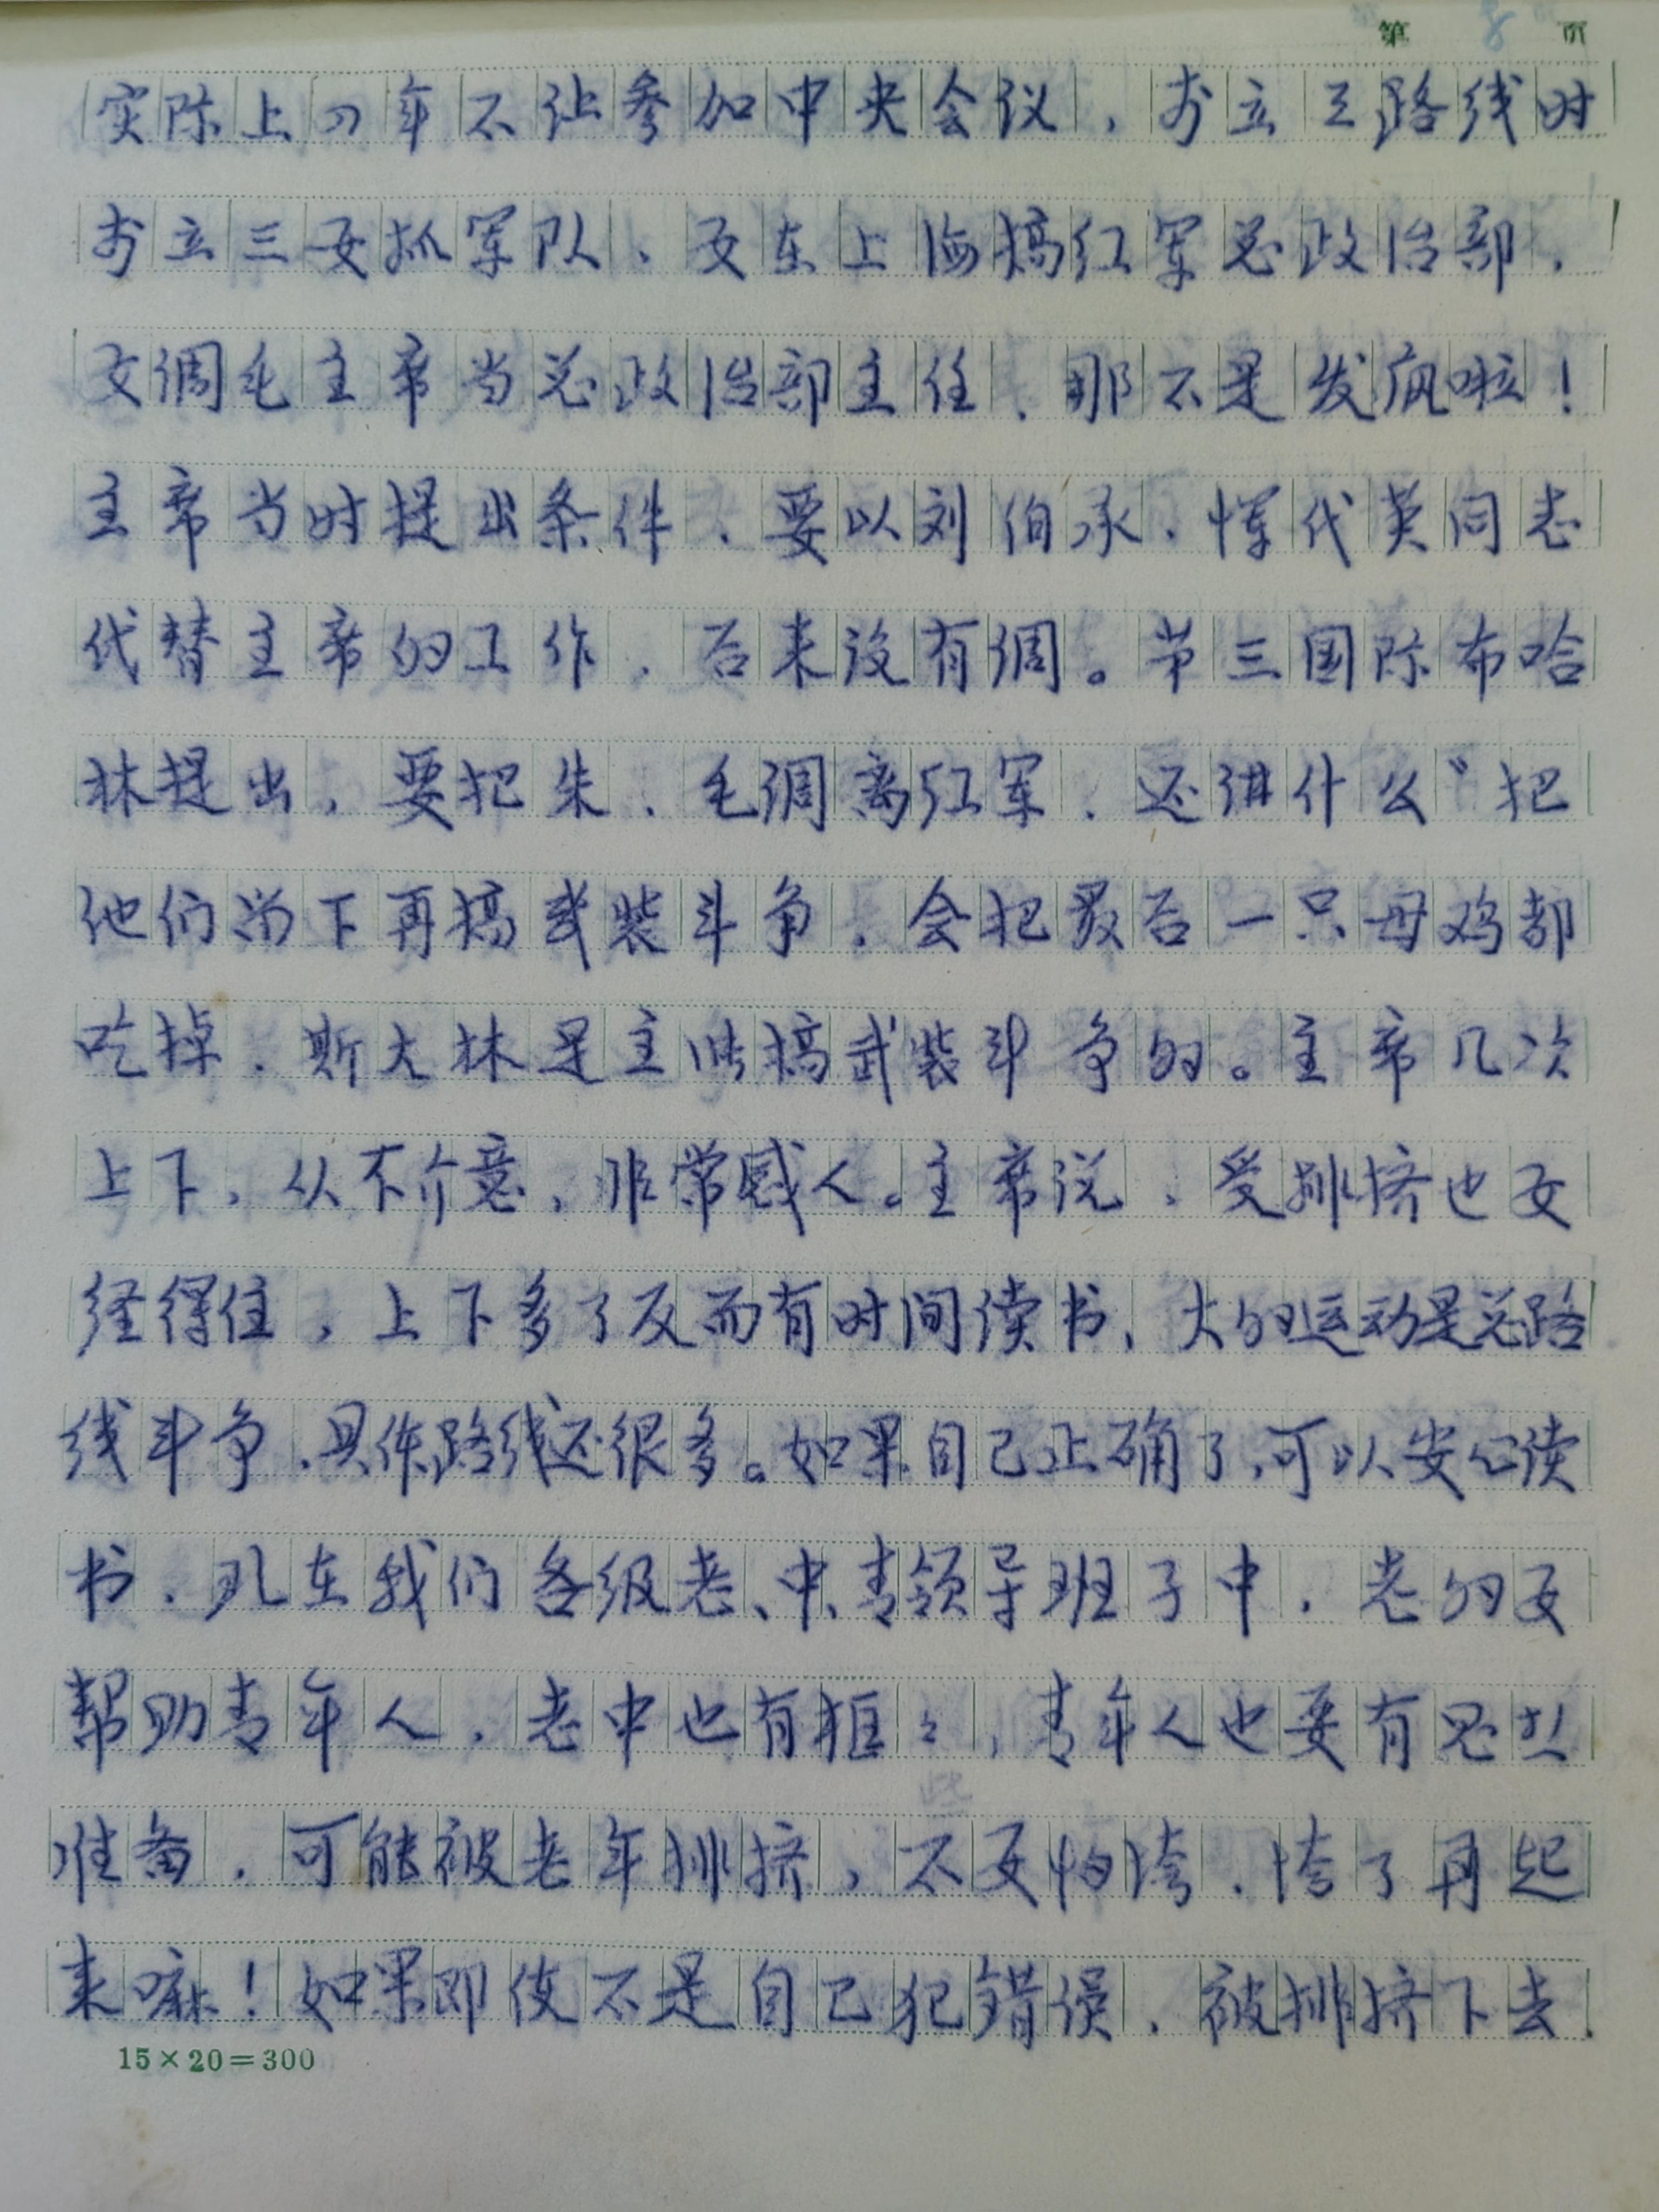 第 8 页
实际上四年不让参加中央会议，李立三路线时
李立三要抓军队，要在上海搞红军总政治部，
要调毛主席当总政治部主任，那不是发疯啦！
主席当时提出条件，要以刘伯承、恽代英同志
代替主席的工作，后来没有调。第三国际布哈
林提出，要把朱、毛调离红军，还讲什么“把
他们留下再搞武装斗争，会把最后一只母鸡都
吃掉，斯大林是主张搞武装斗争的。主席几次
上下，从不介意，非常感人。主席说，受排挤也要
经得住，上下多了反而有时间读书，大的运动是总路
线斗争，具体路线还很多。如果自己正确了，可以安心读
书，现在我们各级老、中、青领导班子中，老的要
帮助青年人，老中也有框々，青年人也要有思想
些
准备，可能被老年排挤，不要怕垮，垮了再起
来嘛！如果即使不是自己犯错误，被排挤下去，
15×20=300